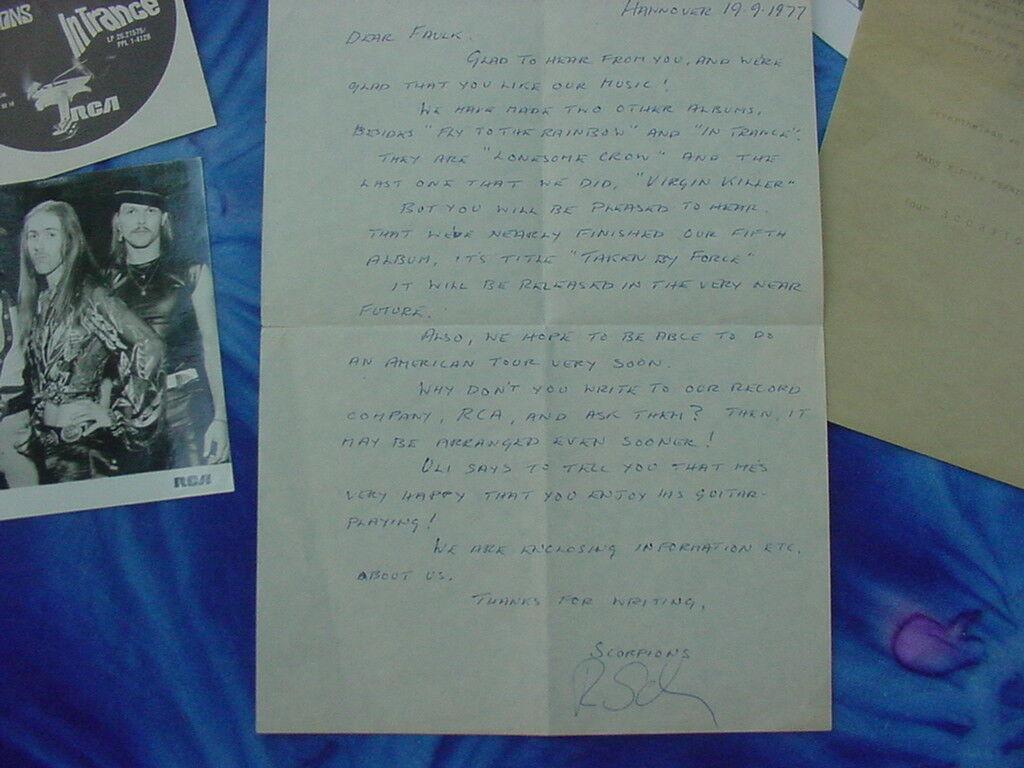 In Trance
LP 26.21575/
PPL 1-4128
RCA
RCA
HANNOVER 19.9.1977
DEAR FAULK.
GLAD TO HEAR FROM YOU, AND WE'RE
GLAD THAT YOU LIKE OUR MUSIC!
WE HAVE MADE TWO OTHER ALBUMS,
BESIDES "FLY TO THE RAINBOW" AND "IN TRANCE".
THEY ARE "LONESOME CROW" AND THE
LAST ONE THAT WE DID, "VIRGIN KILLER"
BUT YOU WILL BE PLEASED TO HEAR.
THAT WE'VE NEARLY FINISHED OUR FIFTH
ALBUM, IT'S TITLE "TAKEN BY FORCE"
IT WILL BE RELEASED IN THE VERY NEAR
FUTURE.
ALSO, WE HOPE TO BE ABLE TO DO
AN AMERICAN TOUR VERY SOON.
WHY DON'T YOU WRITE TO OUR RECORD
COMPANY, RCA, AND ASK THEM? THEN, IT
MAY BE ARRANGED EVEN SOONER!
ULI SAYS TO TELL YOU THAT HE'S
VERY HAPPY THAT YOU ENJOY HIS GUITAR-
PLAYING!
WE ARE ENCLOSING INFORMATION ETC.
ABOUT US.
THANKS FOR WRITING,
SCORPIONS
Many
Your